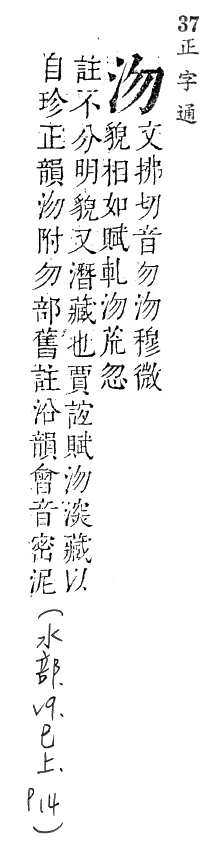 37
正字通
沕
文拂切音勿沕穆微
貌相如賦軋沕荒忽
註不分明貌又潛藏也賈誼賦沕深藏以
自珍正韻沕附勿部舊註沿韻會音密泥(水部.V9.巳上.P14)